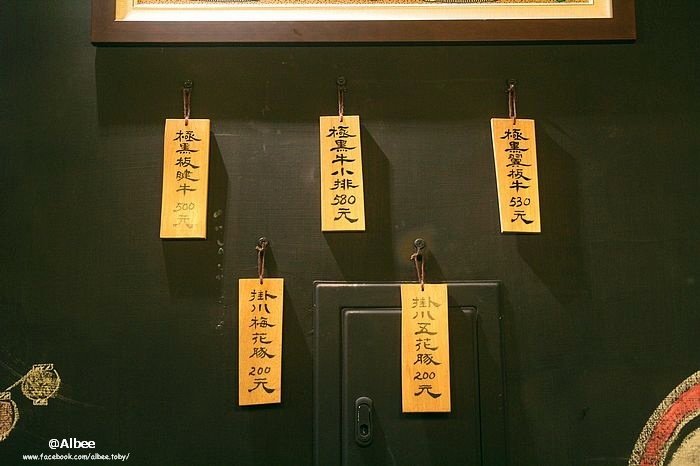 極黑板腱牛500元
極黑牛小排580元
極黑翼板牛530元
掛川梅花豚200元
掛川五花豚200元
@Albee
www.facebook.com/albee.toby/